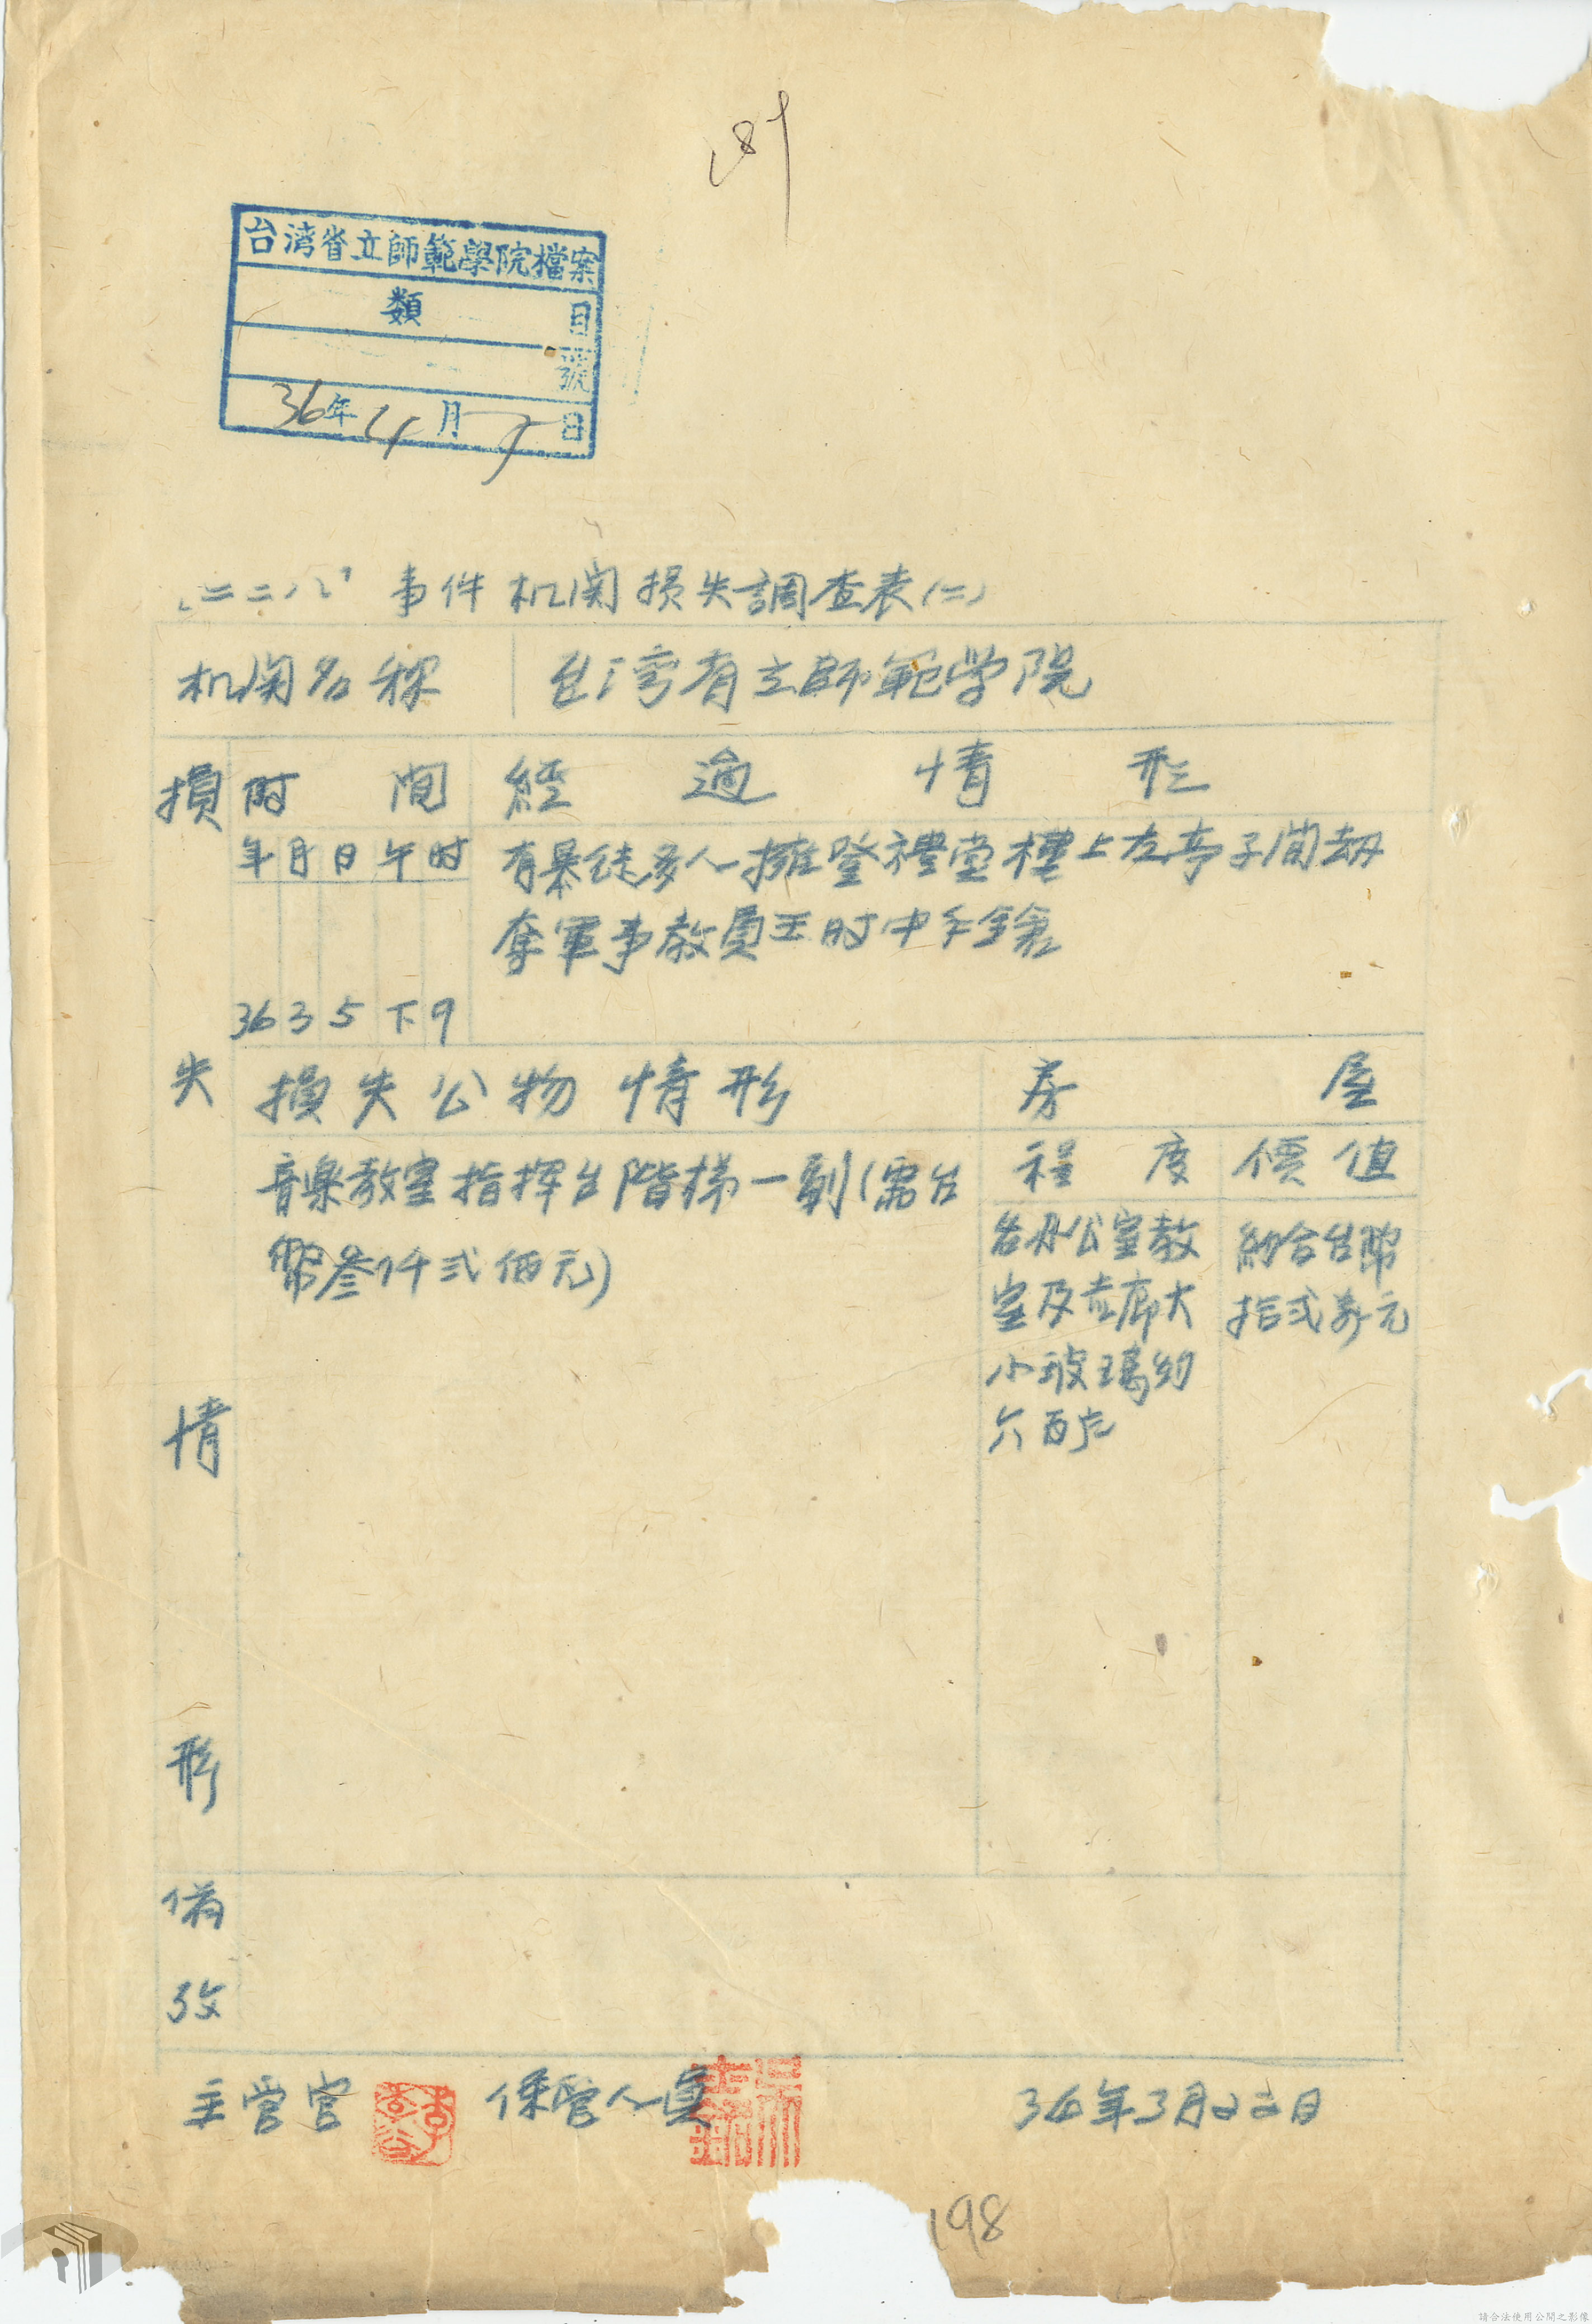 189
台湾省立師範學院檔案
類 目
號
36年4月 日
「二二八」事件机関損失調查表(二)
机関名称 台湾省立師範学院
損 时間 經過情形
年月日午时 有暴徒多人擁登禮堂樓上左亭子間劫
奪軍事教員王时中手鎗
36 3 5 下 9
失 損失公物情形 房屋
音樂教室指揮台階梯一副(需台 程度 價值
幣叁仟弍佰元) 各办公室教 約合台幣
室及走廊大 拾弍萬元
小玻璃約
六百片
情
形
備
攷
主管官 保管人員 36年3月22日
198
請合法使用公開之影像